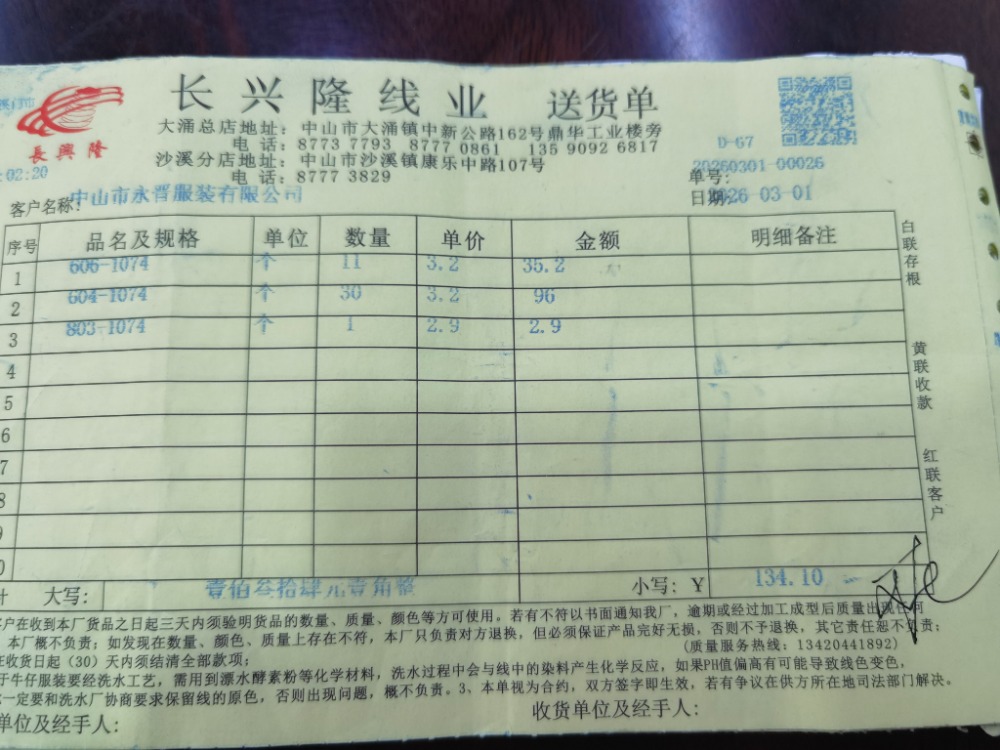 长兴隆线业 送货单
長興隆
大涌总店地址：中山市大涌镇中新公路162号鼎华工业楼旁
电 话：8773 7793 8770 0861 135 9092 6817
沙溪分店地址：中山市沙溪镇康乐中路107号
电 话：8777 3829
D-67
:02:20
单号：20260301-00026
客户名称：中山市永晋服装有限公司
日期：2026 03 01
序号 品名及规格 单位 数量 单价 金额 明细备注
1 606-1074 个 11 3.2 35.2
2 604-1074 个 30 3.2 96
3 803-1074 个 1 2.9 2.9
4
5
6
7
8
白联存根
黄联收款
红联客户
计 大写：壹佰叁拾肆元壹角整 小写：Y 134.10
客户在收到本厂货品之日起三天内须验明货品的数量、质量、颜色等方可使用。若有不符以书面通知我厂，逾期或经过加工成型后质量出现任何
本厂概不负责；如发现在数量、颜色、质量上存在不符，本厂只负责对方退换，但必须保证产品完好无损，否则不予退换，其它责任恕不负责；
在收货日起（30）天内须结清全部款项； （质量服务热线：13420441892）
于牛仔服装要经洗水工艺，需用到漂水酵素粉等化学材料，洗水过程中会与线中的染料产生化学反应，如果PH值偏高有可能导致线色变色，
一定要和洗水厂协商要求保留线的原色，否则出现问题，概不负责。3、本单视为合约，双方签字即生效，若有争议在供方所在地司法部门解决。
单位及经手人： 收货单位及经手人：